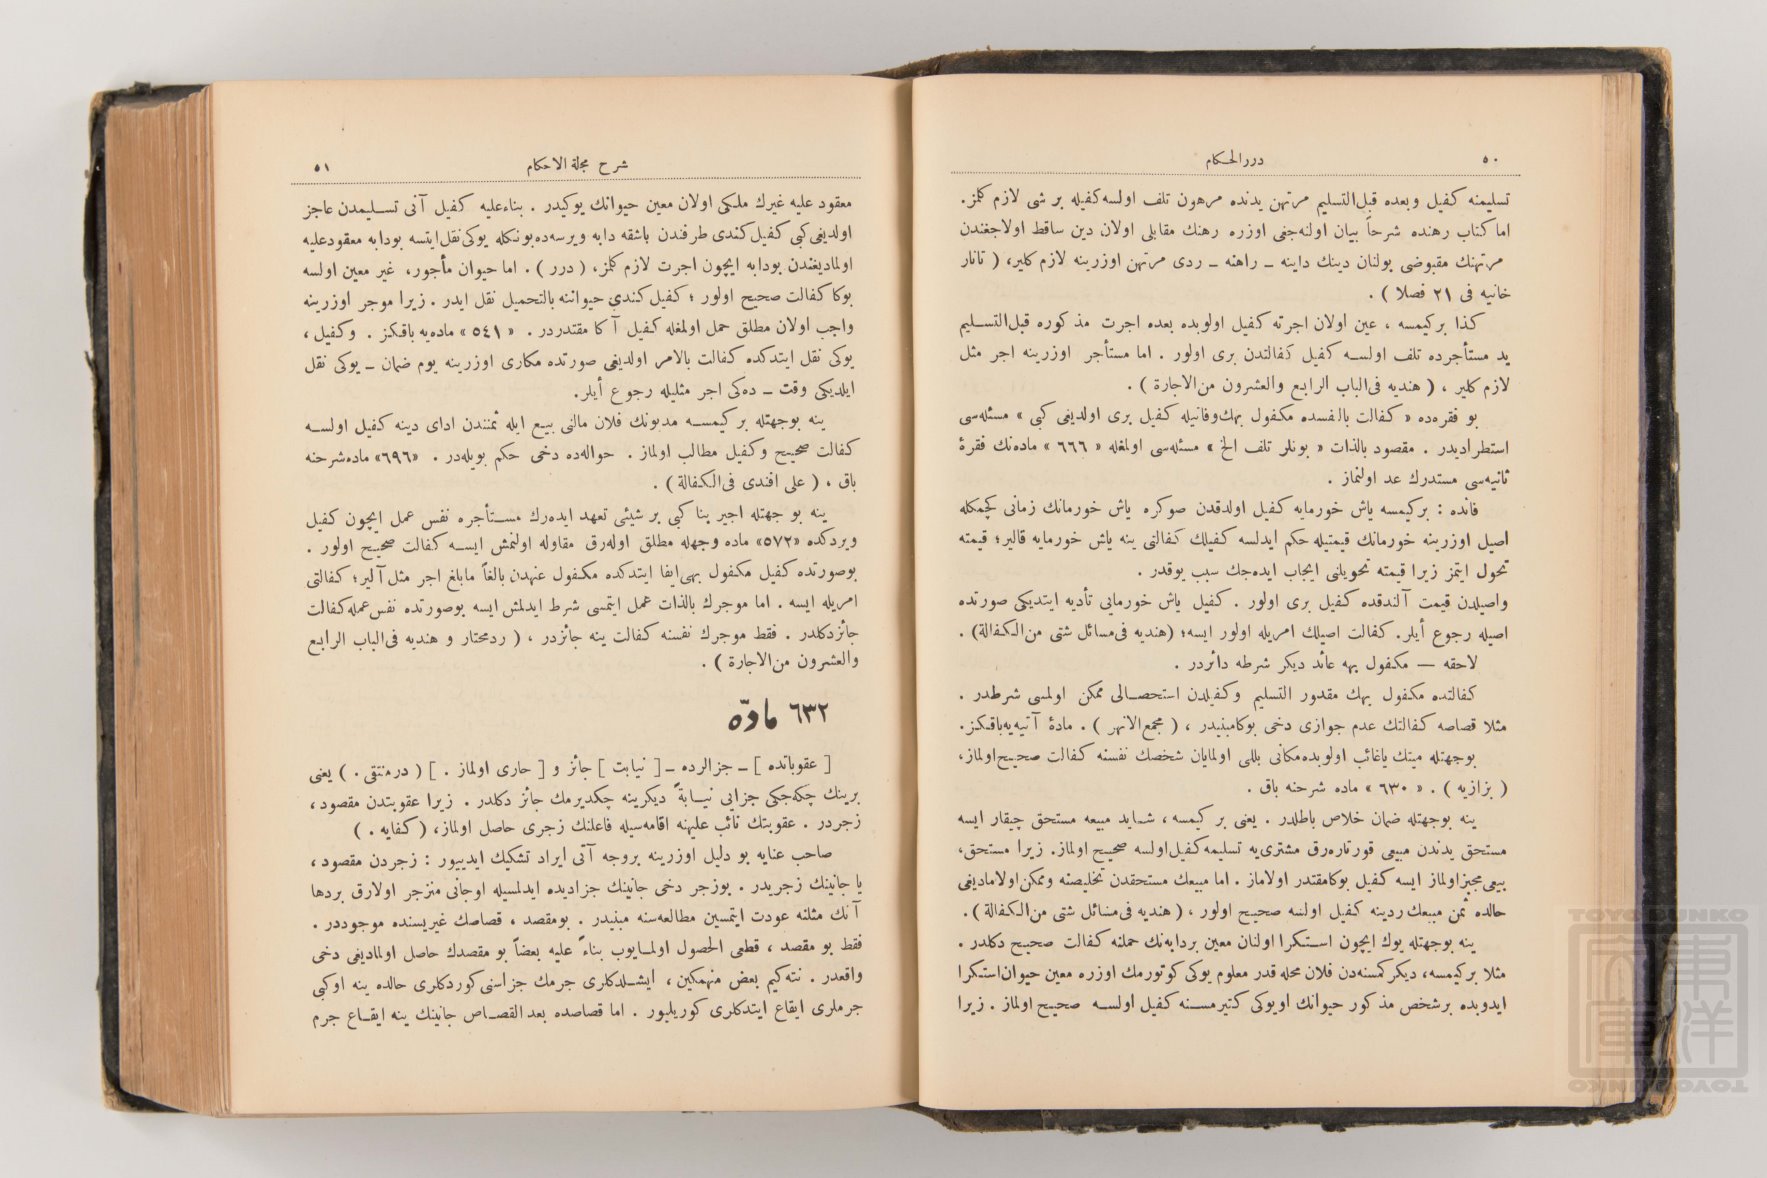 ٥٠
دررالحكام
تسليمنه كفيل وبعده قبل‌التسليم مرتهن يدنده مرهون تلف اولسه كفيله بر شی لازم كلمز.
اما كتاب رهنده شرحاً بيان اولنه‌جغی اوزره رهنك مقابلی اولان دين ساقط اولاجغندن
مرتهنك مقبوضی بولنان دينك داينه ـ راهنه ـ ردی مرتهن اوزرينه لازم كلير، ( تاتار
خانيه فی ٢١ فصلا ) .
كذا بركيمسه ، عين اولان اجرته كفيل اولوبده بعده اجرت مذكوره قبل‌التسليم
يد مستأجرده تلف اولسه كفيل كفالتدن بری اولور . اما مستأجر اوزرينه اجر مثل
لازم كلير ، ( هنديه فی‌الباب الرابع والعشرون من‌الاجارة ) .
بو فقره‌ده « كفالت بالنفسده مكفول بهك وفاتيله كفيل بری اولديغی كبی » مسئله‌سی
استطراديدر . مقصود بالذات « بونلر تلف الخ » مسئله‌سی اولمغله « ٦٦٦ » ماده‌نك فقرۀ
ثانيه‌سی مستدرك عد اولنماز .
فائده : بركيمسه ياش خورمايه كفيل اولدقدن صوكره ياش خورمانك زمانی كچمكله
اصيل اوزرينه خورمانك قيمتيله حكم ايدلسه كفيلك كفالتی ينه ياش خورمايه قالير؛ قيمته
تحول ايتمز زيرا قيمته تحويلنی ايجاب ايده‌جك سبب يوقدر .
واصيلدن قيمت آلندقده كفيل بری اولور . كفيل ياش خورمايی تأديه ايتديكی صورتده
اصيله رجوع أيلر. كفالت اصيلك امريله اولور ايسه؛ (هنديه فی‌مسائل شتی من‌الكفالة) .
لاحقه — مكفول بهه عائد ديكر شرطه دائردر .
كفالتده مكفول بهك مقدور التسليم وكفيلدن استحصالی ممكن اولمسی شرطدر .
مثلا قصاصه كفالتك عدم جوازی دخی بوكامبنيدر ، ( مجمع‌الانهر ) . مادۀ آتيه‌يه‌باقكز.
بوجهتله ميتك ياغائب اولوبده‌مكانی بللی اولمايان شخصك نفسنه كفالت صحيح اولماز،
( بزازيه ) . « ٦٣٠ » ماده شرحنه باق .
ينه بوجهتله ضمان خلاص باطلدر . يعنی بر كيمسه ، شايد مبيعه مستحق چيقار ايسه
مستحق يدندن مبيعی قورتاره‌رق مشتری‌يه تسليمه كفيل‌اولسه صحيح اولماز. زيرا مستحق،
بيعی مجيزاولماز ايسه كفيل بوكامقتدر اولاماز . اما مبيعك مستحقدن تخليصنه وممكن اولاماديغی
حالده ثمن مبيعك ردينه كفيل اولسه صحيح اولور ، ( هنديه فی‌مسائل شتی من‌الكفالة ) .
ينه بوجهتله يوك ايچون استكرا اولنان معين بردابه‌نك حملنه كفالت صحيح دكلدر .
مثلا بركيمسه، ديكركمسنه‌دن فلان محله قدر معلوم يوكی كوتورمك اوزره معين حيوان استكرا
ايدوبده برشخص مذكور حيوانك اويوكی كتيرمسنه كفيل اولسه صحيح اولماز . زيرا
٥١
شرح مجلة الاحكام
معقود عليه غيرك ملكی اولان معين حيوانك يوكيدر . بناءعليه كفيل آنی تسليمدن عاجز
اولديغی كبی كفيل كندی طرفندن باشقه دابه ويرسه‌ده بونكله يوكی نقل ايتسه بودابه معقودعليه
اولماديغندن بودابه ايچون اجرت لازم كلمز، ( درر ) . اما حيوان مأجور، غير معين اولسه
بوكا كفالت صحيح اولور ؛ كفيل كندي حيواننه بالتحميل نقل ايدر . زيرا موجر اوزرينه
واجب اولان مطلق حمل اولمغله كفيل آكا مقتدردر . « ٥٤١ » ماده‌يه باقكز . وكفيل ،
يوكی نقل ايتدكده كفالت بالامر اولديغی صورتده مكاری اوزرينه يوم ضمان ـ يوكی نقل
ايلديكی وقت ـ ده‌كی اجر مثليله رجوع أيلر.
ينه بوجهتله بر كيمسه مديونك فلان مالنی بيع ايله ثمنندن ادای دينه كفيل اولسه
كفالت صحيح وكفيل مطالب اولماز . حواله‌ده دخی حكم بويله‌در . «٦٩٦» ماده‌شرحنه
باق ، ( علی افندی فی‌الكفالة ) .
ينه بو جهتله اجير بنا كبی بر شيئی تعهد ايده‌رك مستأجره نفس عمل ايچون كفيل
ويردكده «٥٧٢» ماده وجهله مطلق اوله‌رق مقاوله اولنمش ايسه كفالت صحيح اولور .
بوصورتده كفيل مكفول بهی‌ايفا ايتدكده مكفول عنهدن بالغاً مابلغ اجر مثل آلير؛ كفالتی
امريله ايسه . اما موجرك بالذات عمل ايتمسی شرط ايدلمش ايسه بوصورتده نفس‌عمله‌كفالت
جائزدكلدر . فقط موجرك نفسنه كفالت ينه جائزدر ، ( ردمحتار و هنديه فی‌الباب الرابع
والعشرون من‌الاجارة ) .
٦٣٢ مادّه
[ عقوباتده ] ـ جزالرده ـ [ نيابت ] جائز و [ جاری اولماز . ] ( درمنتقی . ) يعنی
برينك چكه‌جكی جزايی نيابةً ديكرينه چكديرمك جائز دكلدر . زيرا عقوبتدن مقصود ،
زجردر . عقوبتك نائب عليهنه اقامه‌سيله فاعلنك زجری حاصل اولماز، ( كفايه . )
صاحب عنايه بو دليل اوزرينه بروجه آتی ايراد تشكيك ايدييور : زجردن مقصود ،
يا جانينك زجريدر . بوزجر دخی جانينك جزاديده ايدلمسيله اوجانی منزجر اولارق بردها
آنك مثلنه عودت ايتمسين مطالعه‌سنه مبنيدر . بومقصد ، قصاصك غيريسنده موجوددر .
فقط بو مقصد ، قطعی الحصول اولمايوب بناءً عليه بعضاً بو مقصدك حاصل اولماديغی دخی
واقعدر . نته‌كيم بعض منهمكين ، ايشلدكلری جرمك جزاسنی كوردكلری حالده ينه اوكبی
جرملری ايقاع ايتدكلری كوريليور . اما قصاصده بعد القصاص جانينك ينه ايقاع جرم
TOYO BUNKO
東洋文庫
TOYO BUNKO